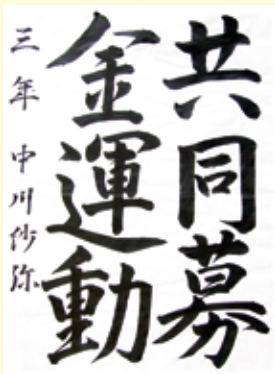 共同募
金運動
三年 中川紗弥